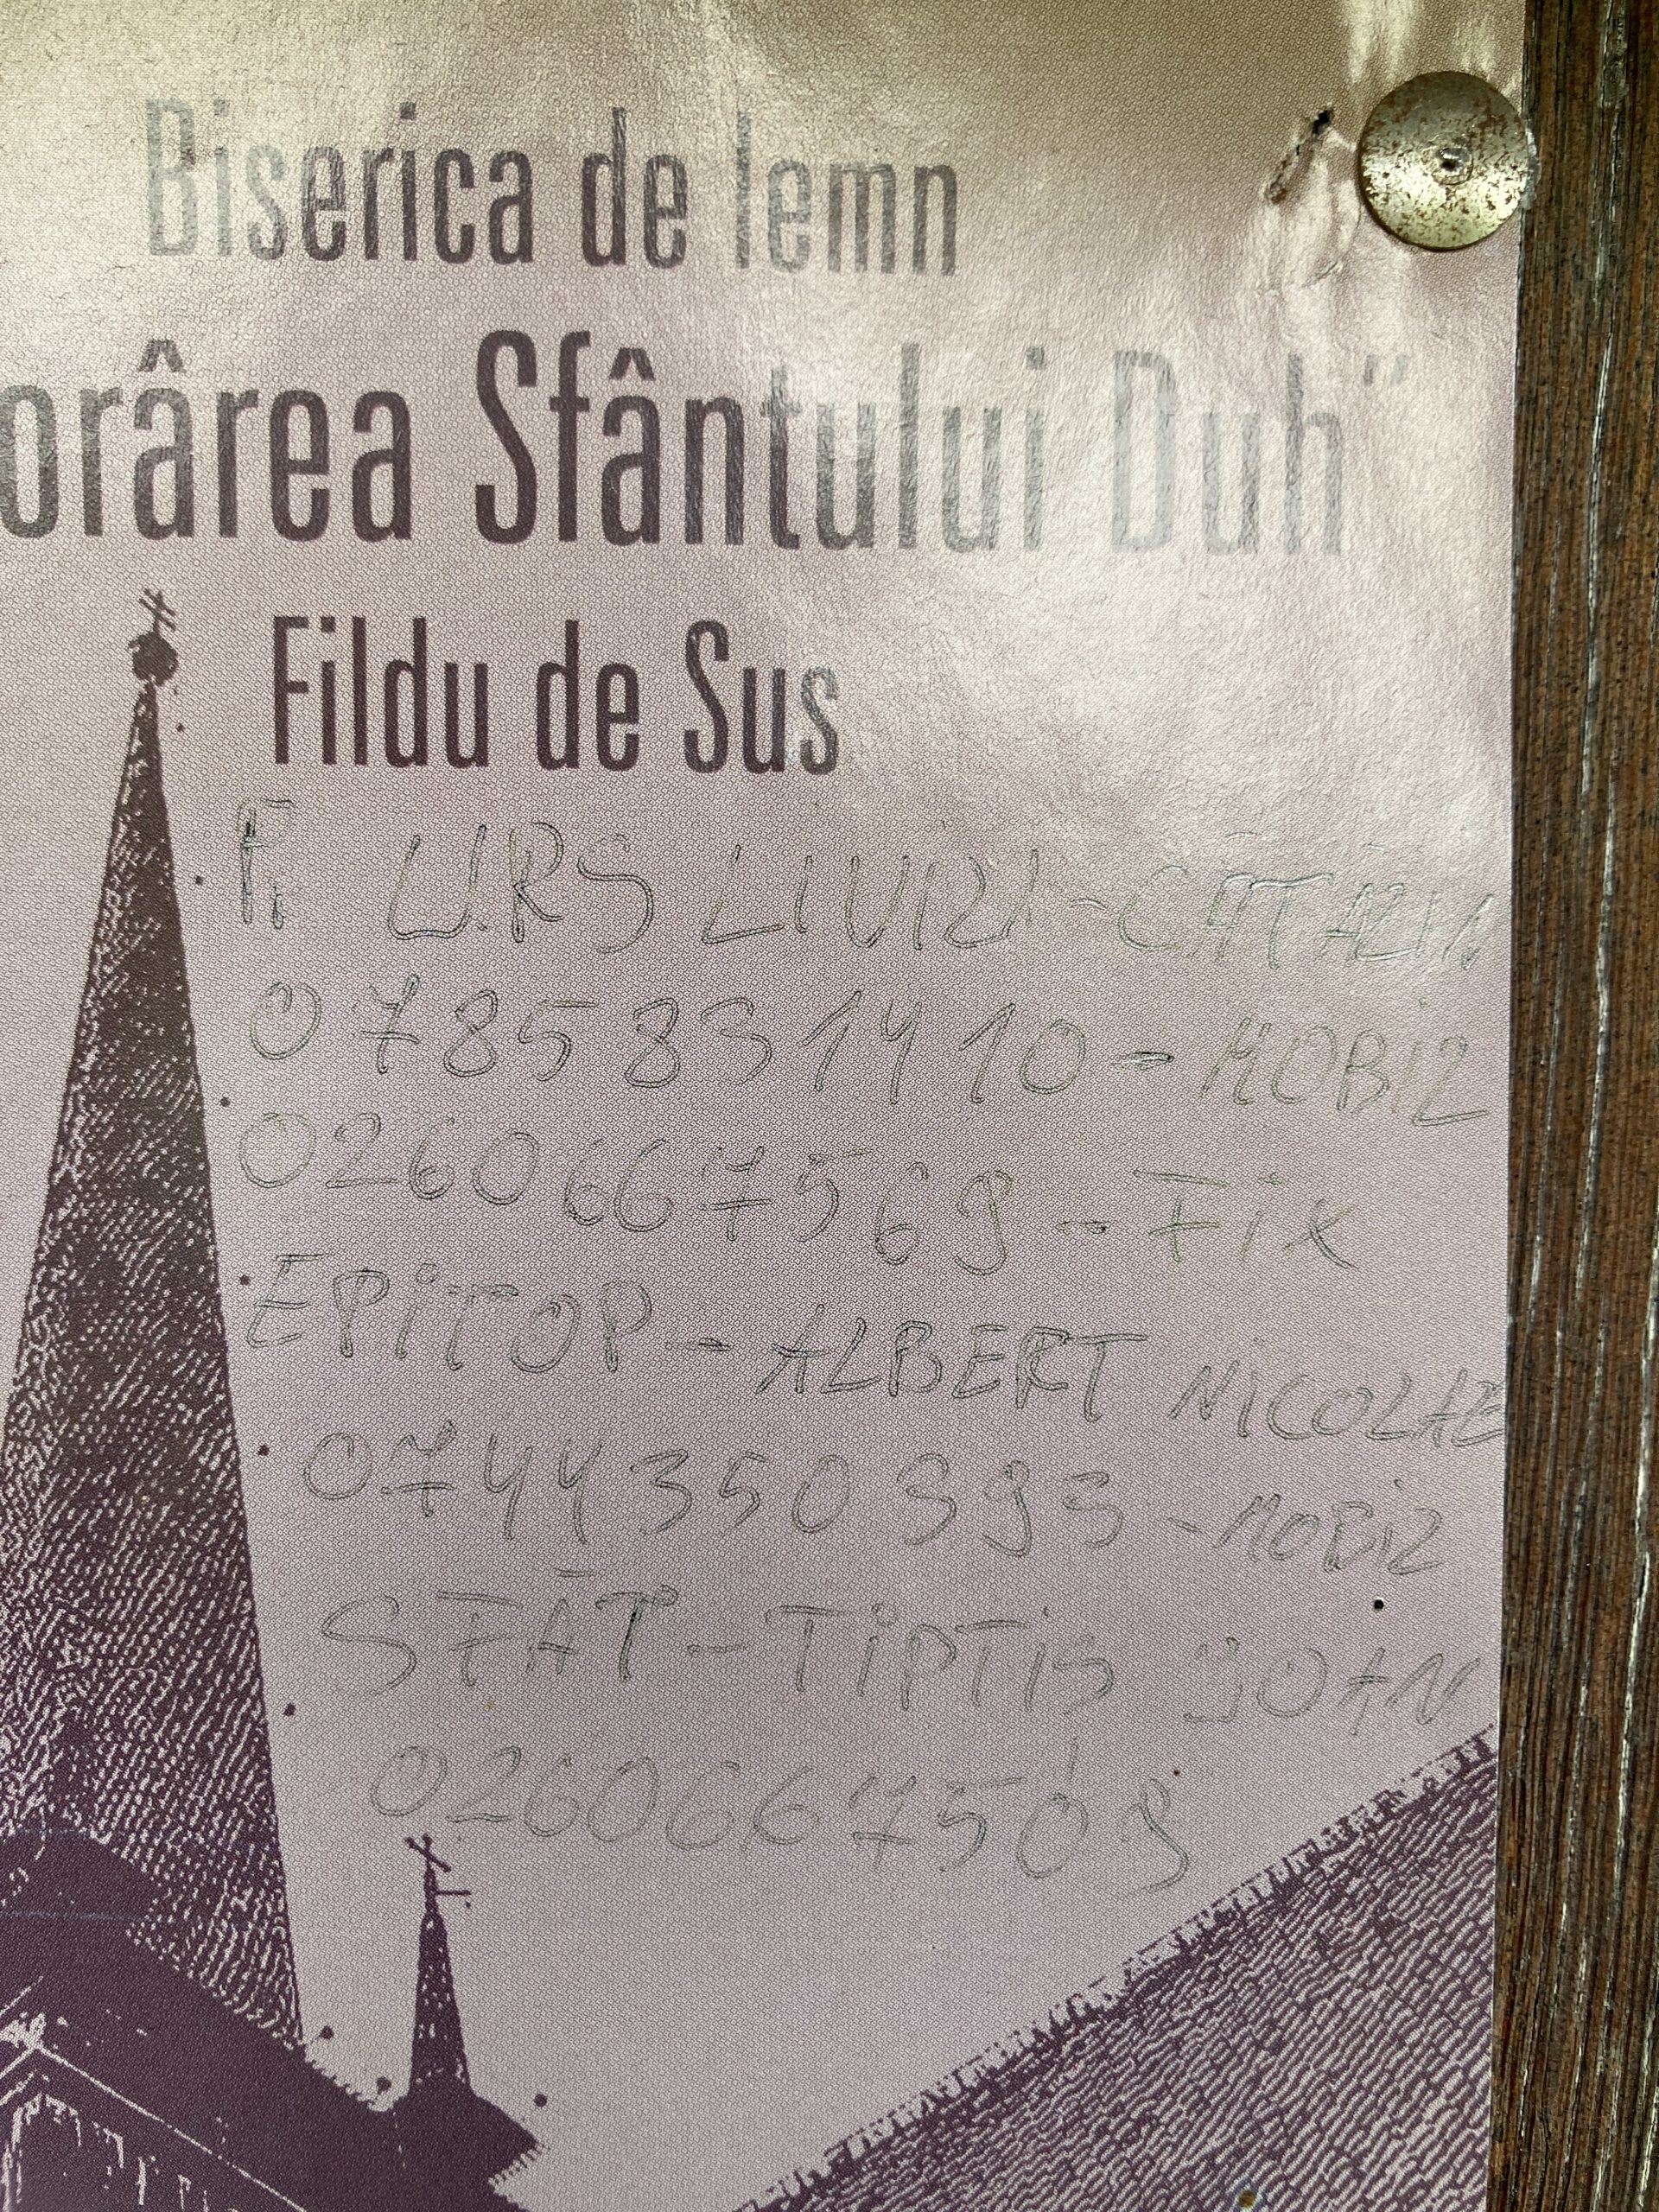 Biserica de lemn
orârea Sfântului Duh”
Fildu de Sus
URS LIVIU-CĂTĂLIN
0785831410 - MOBIL
0260667569 - FIX
EPITOP - ALBERT NICOLAE
0744350993 - MOBIL
SFĂT - TIPTIŞ IOAN
0260667509